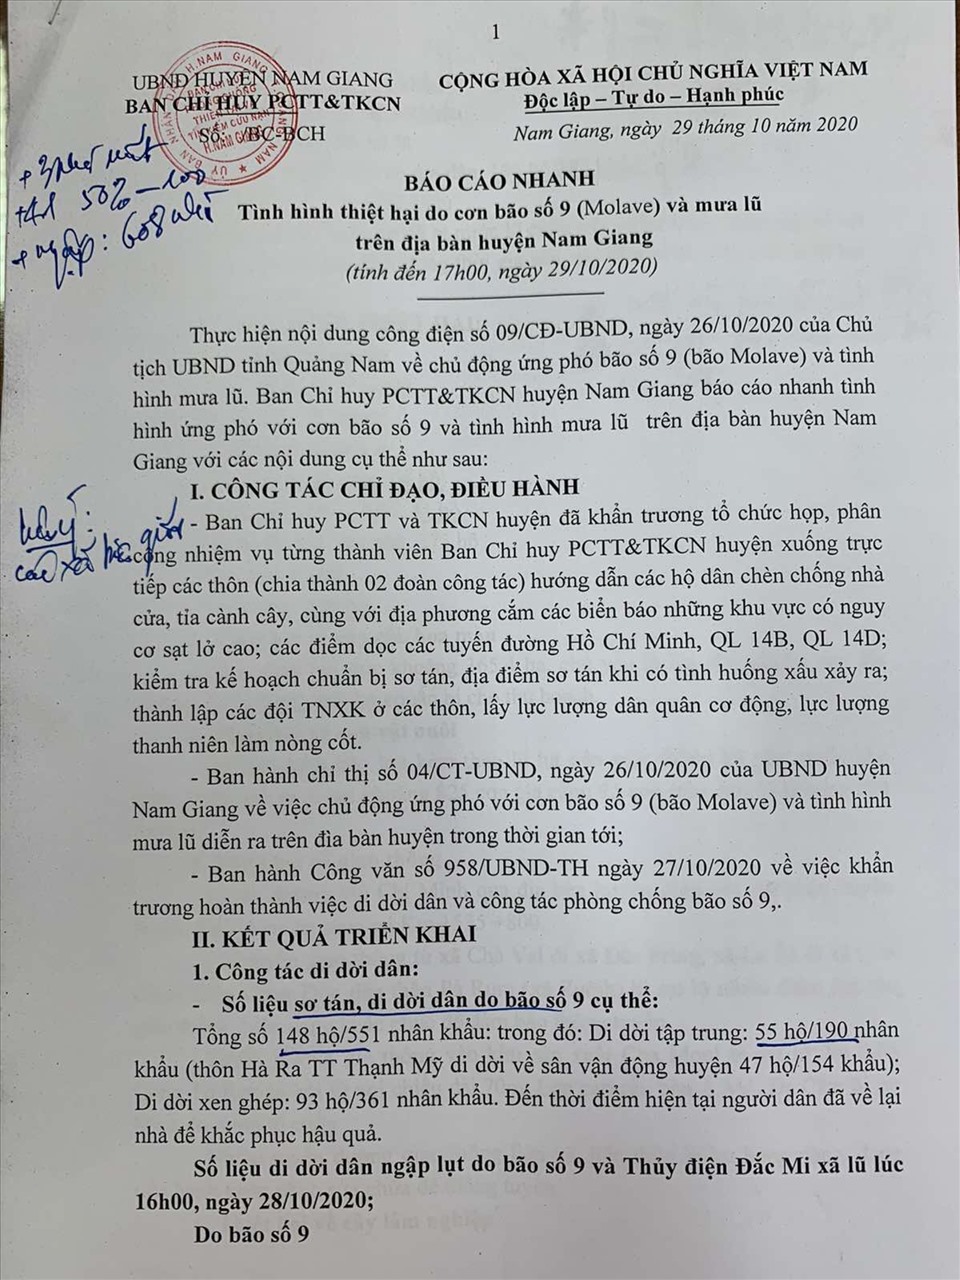 1
UBND HUYỆN NAM GIANG
BAN CHỈ HUY PCTT&TKCN
Số: BC-BCH
CỘNG HÒA XÃ HỘI CHỦ NGHĨA VIỆT NAM
Độc lập – Tự do – Hạnh phúc
Nam Giang, ngày 29 tháng 10 năm 2020
+ 50% – 100
+ ngập: 608 nhà
BÁO CÁO NHANH
Tình hình thiệt hại do cơn bão số 9 (Molave) và mưa lũ
trên địa bàn huyện Nam Giang
(tính đến 17h00, ngày 29/10/2020)
Thực hiện nội dung công điện số 09/CĐ-UBND, ngày 26/10/2020 của Chủ
tịch UBND tỉnh Quảng Nam về chủ động ứng phó bão số 9 (bão Molave) và tình
hình mưa lũ. Ban Chỉ huy PCTT&TKCN huyện Nam Giang báo cáo nhanh tình
hình ứng phó với cơn bão số 9 và tình hình mưa lũ trên địa bàn huyện Nam
Giang với các nội dung cụ thể như sau:
I. CÔNG TÁC CHỈ ĐẠO, ĐIỀU HÀNH
- Ban Chỉ huy PCTT và TKCN huyện đã khẩn trương tổ chức họp, phân
công nhiệm vụ từng thành viên Ban Chỉ huy PCTT&TKCN huyện xuống trực
tiếp các thôn (chia thành 02 đoàn công tác) hướng dẫn các hộ dân chèn chống nhà
cửa, tỉa cành cây, cùng với địa phương cắm các biển báo những khu vực có nguy
cơ sạt lở cao; các điểm dọc các tuyến đường Hồ Chí Minh, QL 14B, QL 14D;
kiểm tra kế hoạch chuẩn bị sơ tán, địa điểm sơ tán khi có tình huống xấu xảy ra;
thành lập các đội TNXK ở các thôn, lấy lực lượng dân quân cơ động, lực lượng
thanh niên làm nòng cốt.
- Ban hành chỉ thị số 04/CT-UBND, ngày 26/10/2020 của UBND huyện
Nam Giang về việc chủ động ứng phó với cơn bão số 9 (bão Molave) và tình hình
mưa lũ diễn ra trên đìa bàn huyện trong thời gian tới;
- Ban hành Công văn số 958/UBND-TH ngày 27/10/2020 về việc khẩn
trương hoàn thành việc di dời dân và công tác phòng chống bão số 9,.
II. KẾT QUẢ TRIỂN KHAI
1. Công tác di dời dân:
- Số liệu sơ tán, di dời dân do bão số 9 cụ thể:
Tổng số 148 hộ/551 nhân khẩu: trong đó: Di dời tập trung: 55 hộ/190 nhân
khẩu (thôn Hà Ra TT Thạnh Mỹ di dời về sân vận động huyện 47 hộ/154 khẩu);
Di dời xen ghép: 93 hộ/361 nhân khẩu. Đến thời điểm hiện tại người dân đã về lại
nhà để khắc phục hậu quả.
Số liệu di dời dân ngập lụt do bão số 9 và Thủy điện Đắc Mi xã lũ lúc
16h00, ngày 28/10/2020;
Do bão số 9